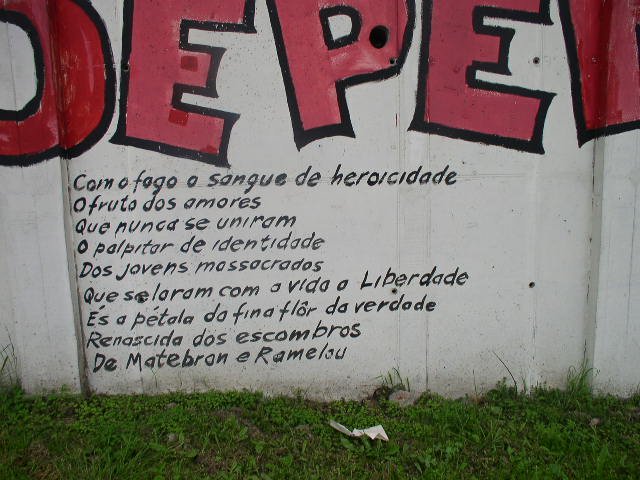 DEPE
Com o fogo o sangue de heroicidade
O fruto dos amores
Que nunca se uniram
O palpitar de identidade
Dos jovens massacrados
Que selaram com a vida a Liberdade
És a pétala da fina flôr da verdade
Renascida dos escombros
De Matebran e Ramelau